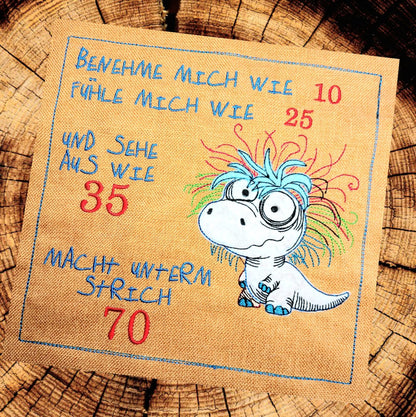 BENEHME MICH WIE 10
FÜHLE MICH WIE 25
UND SEHE
AUS WIE
35
MACHT UNTERM
STRICH
70